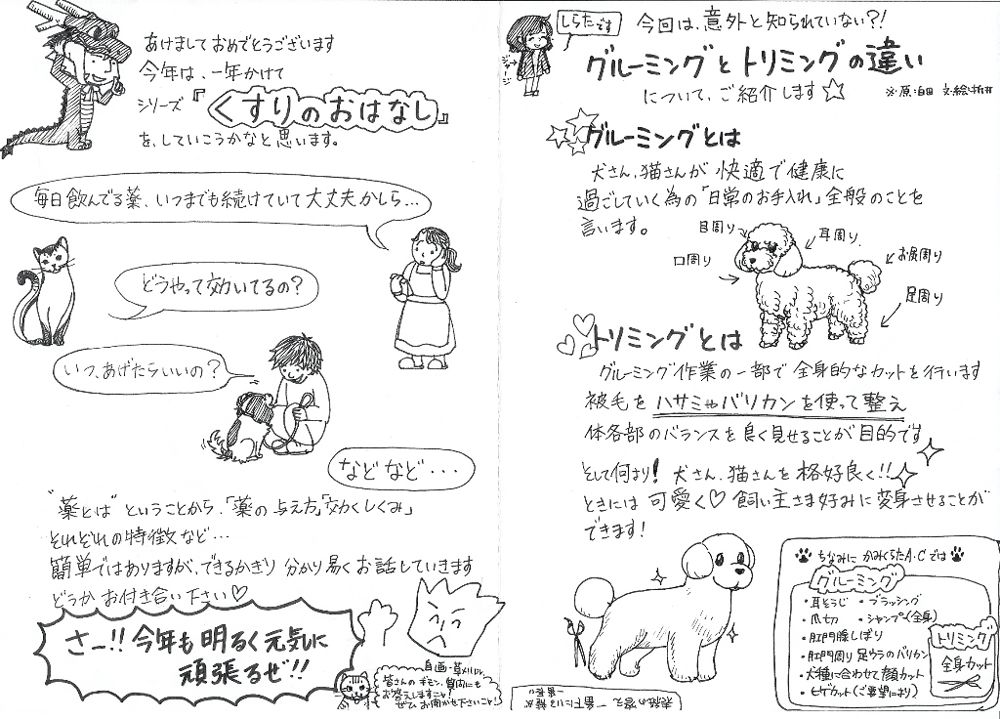 あけましておめでとうございます
今年は、一年かけて
シリーズ『くすりのおはなし』
を、していこうかなと思います。
毎日飲んでる薬、いつまでも続けていて大丈夫かしら…
どうやって効いてるの?
いつ、あげたらいいの?
などなど・・・
"薬とは"ということから、「薬の与え方」「効くしくみ」
それぞれの特徴など…
簡単ではありますが、できるかぎり分かり易くお話していきます
どうかお付き合い下さい♡
さー!!今年も明るく元気に
頑張るぜ!!
皆さんのギモン、質問にも
お答えしますニャ!
ぜひお聞かせ下さいニャ!
しらたです
ジャージ
今回は、意外と知られていない?!
グルーミングとトリミングの違い
について、ご紹介します☆
グルーミングとは
犬さん、猫さんが快適で健康に
過ごしていく為の「日常のお手入れ」全般のことを
言います。
目周り
耳周り
口周り
お尻周り
足周り
トリミングとは
グルーミング作業の一部で全身的なカットを行います
被毛をハサミやバリカンを使って整え
体各部のバランスを良く見せることが目的です
そして何より!犬さん、猫さんを格好良く!!
ときには可愛く♡飼い主さま好みに変身させることが
できます!
ちなみにかみくらたA.Cでは
グルーミング
・耳そうじ ・ブラッシング
・爪切 ・シャンプー(全身)
・肛門腺しぼり
・肛門周り足ウラのバリカン
・犬種に合わせて顔カット
・ヒゲカット(ご要望により)
トリミング
全身カット